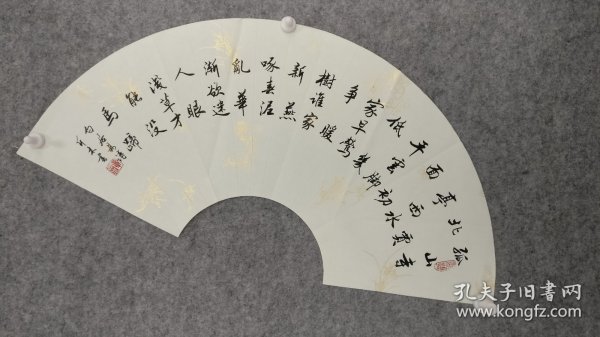 孤山寺
北賈
亭西水
面初
平雲腳
低幾
早鶯
爭暖
樹誰家
新燕
啄春泥
亂華
漸欲迷
人眼
淺草才
能沒
馬蹄
孔夫子旧书网
www.kongfz.com